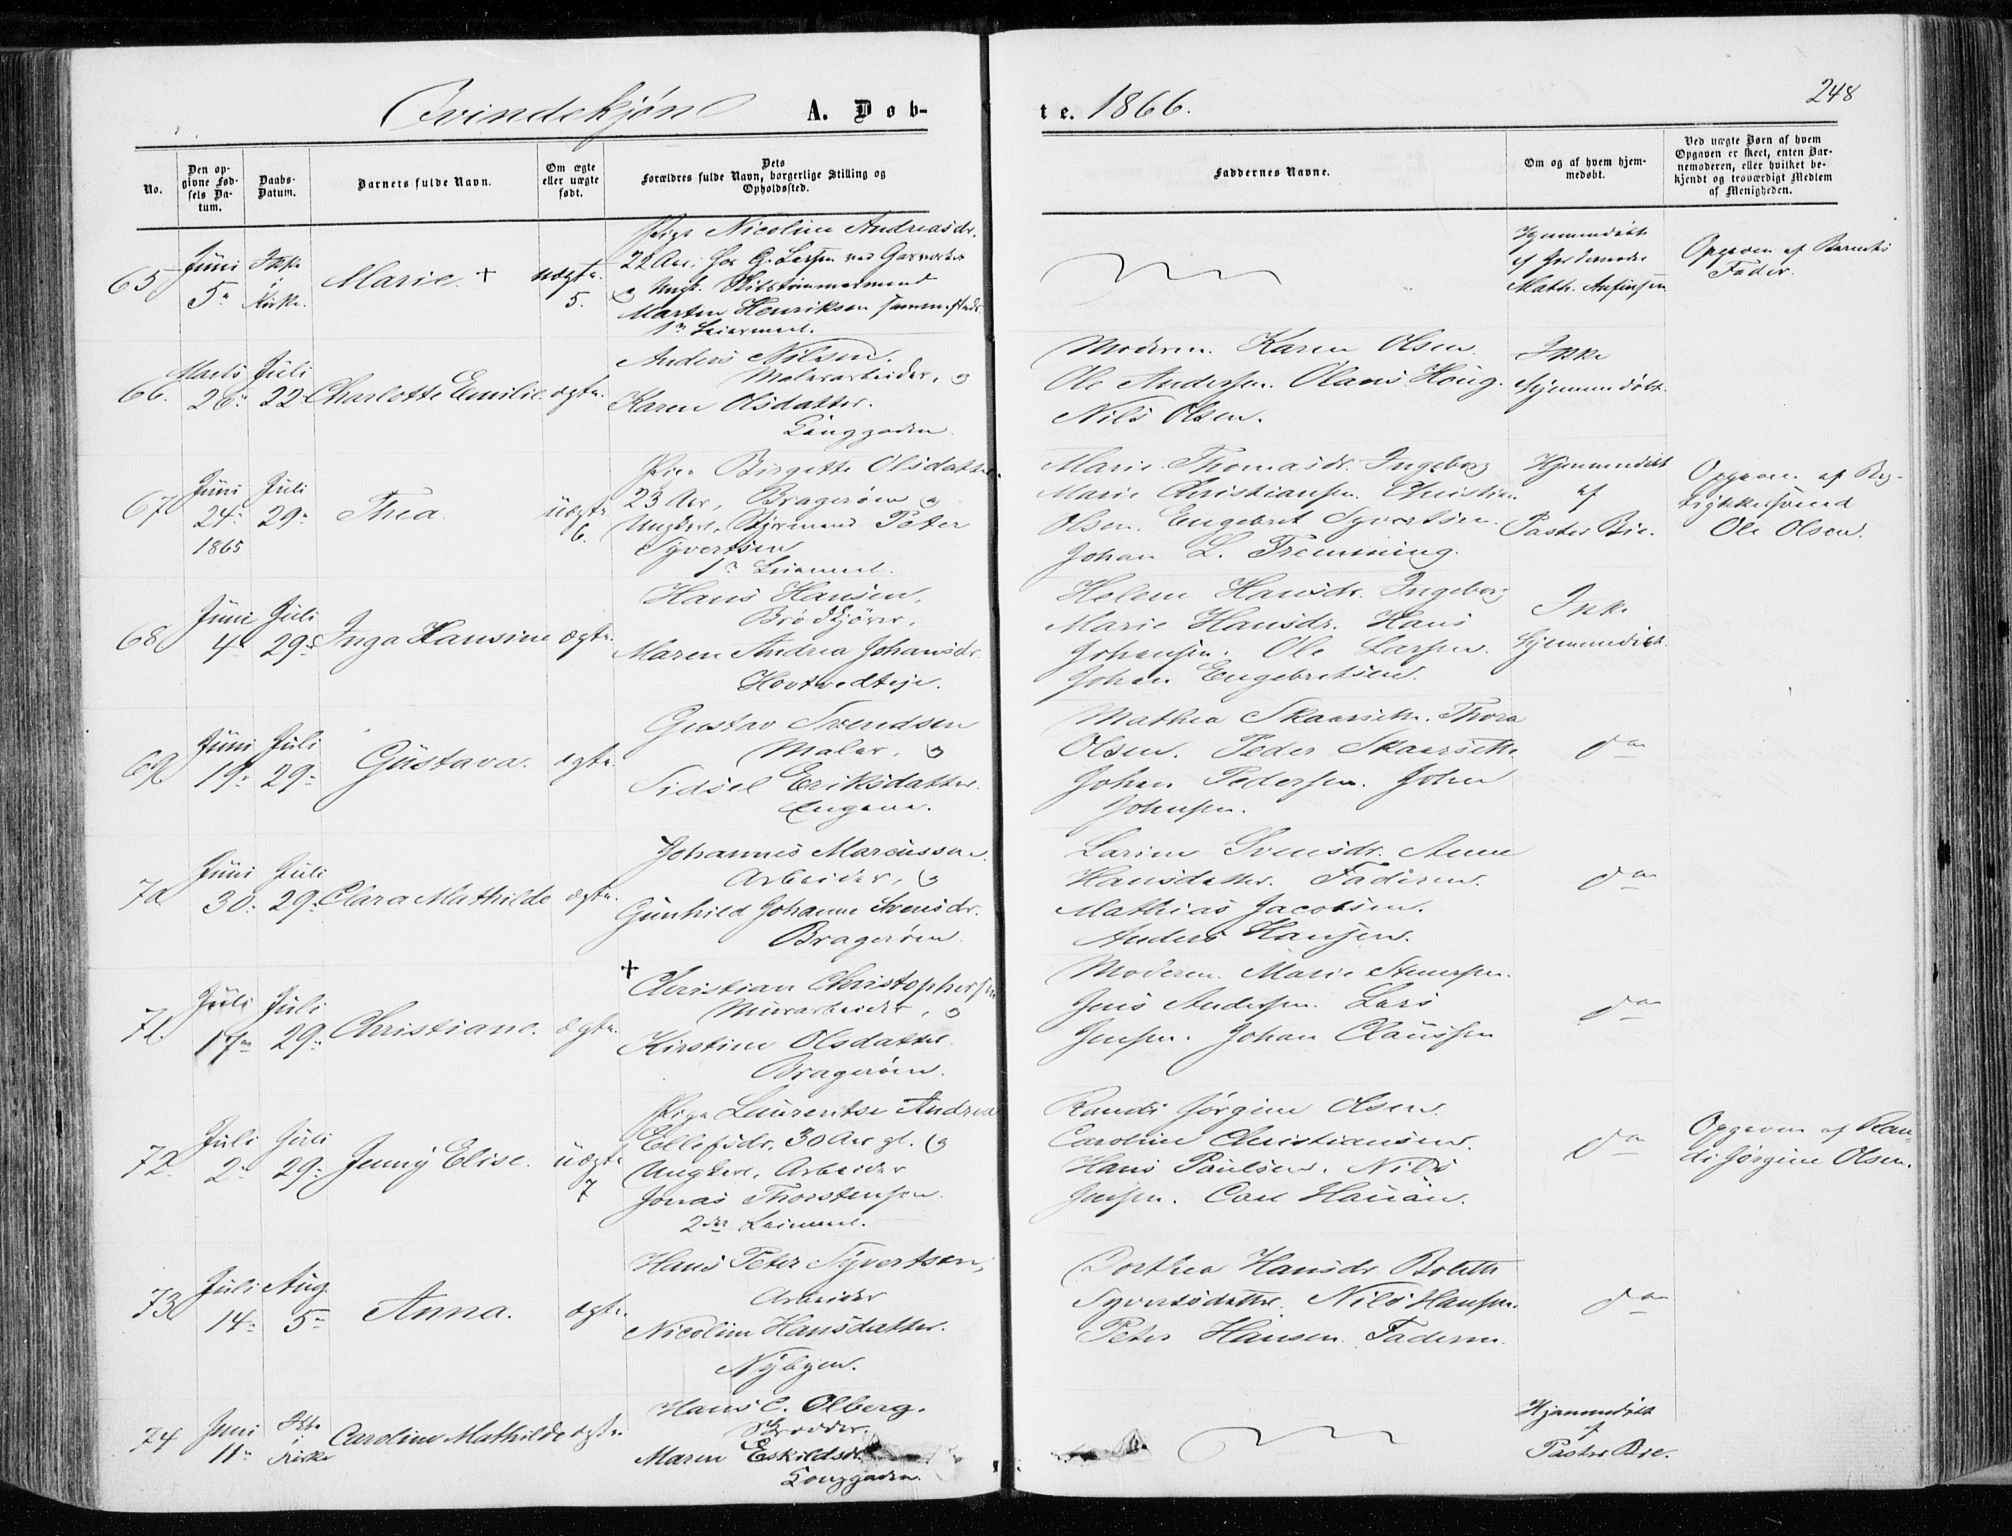 Qvindekjøn A. Døb-
te. 1866. 248
No.
Den op-
givne Fød-
sels Da-
tum.
Daabs-
Datum.
Barnets fulde Navn.
Om ægte
eller uægte
født.
Dets
Forældres fulde Navn, borgerlige Stilling og
Opholdssted.
Faddernes Navne.
Om og af hvem hjem-
medøbt.
Ved uægte Børn af hvem
Opgaven er skeet, enten Bar-
nemoderen, eller hvilket be-
kjendt og troværdigt Medlem
af Menigheden.
65
Juni
5
Ikke
i
Kirke.
Marie. +
uægte.
5.
Pige Nicoline Andreasdr.
22 Aar, hos G. Larsen ved
Ungk.
Marten Henriksen sammesteds.
1ste Leiermaal.
Hjemmedøbt
af Jordemoder
Math. Anfinsen
Opgaven af Barnets
Fader.
66.
Marts
26
Juli
22
Charlotte Emilie
ægte.
Anders Nilsen.
Malerarbeider, og
Karen Olsdatter.
Langgaden.
Moderen. Karen Olsen.
Ole Andersen. Olaus Houg.
Nils Olsen.
Ikke
Hjemmedøbt.
67
Juni
24
1865
Juli
29
Thea.
uægte.
6.
Pige Birgitte Olsdatter
23 Aar, Bragerøen og
Ungkarl, Styrmand Peter
Syvertsen
1ste Leiermaal.
Marie Thomasdr. Ingeborg
Marie Christiansen. Christian
Olsen. Engebret Syvertsen.
Johan L. Fremming.
Hjemmedøbt
af
Pastor Bie.
Opgaven af
Ole Olsen.
68
Juni
4
Juli
29
Inga Hansine
ægte.
Hans Hansen,
Brødkjører,
Maren Andrea Johansdr.
Hovtvedteje.
Helene Hansdr. Ingeborg
Marie Hansdr. Hans
Johansen. Ole Larsen.
Johan Engebretsen.
Ikke
Hjemmedøbt.
69
Juni
19
Juli
29
Gustava.
ægte.
Gustav Svendsen
Maler, og
Sidsel Eriksdatter.
Engene.
Mathea Skaarseth. Thora
Olsen. Peder Skaarseth.
Johan Pedersen. John
Johnsen.
do
70
Juni
30
Juli
29
Clara Mathilde
ægte.
Johannes Marcussen.
Arbeider, og
Gunhild Johanne Svensdr.
Bragerøen.
Larine Svensdr. Anne
Hansdatter. Faderen.
Mathias Jacobsen.
Anders Hansen.
do
71.
Juli
17
Juli
29
Christiane.
ægte.
+
Christian Christophersen
Murarbeider, og
Kirstine Olsdatter.
Bragerøen.
Moderen. Marie Steensen.
Jens Andersen. Lars
Jensen. Johan Claussen
do
72.
Juli
2
Juli
29
Jenny Elise.
uægte
7
Pige Laurentse Andrea
Ellefsdr. 30 Aar gl. og
Ungkarl, Arbeider
Jonas Thorstensen.
2det Leiermaal.
Randi Jørgine Olsen.
Caroline Christiansen.
Hans Paulsen. Nils
Jensen. Carl Hauan.
do
Opgaven af Ran-
di Jørgine Olsen.
73
Juli
14
Aug.
5
Anna.
ægte.
Hans Peter Syvertsen,
Arbeider
Nicoline Hansdatter.
Nybyen.
Dorthea Hansdr. Bolette
Syvertsdatter. Nils Hansen.
Peter Hansen. Faderen.
do
74
Juni
11
Ikke
i
Kirke
Caroline Mathilde
ægte.
Hans C. Olberg.
Skrædder.
Maren Eskildsdr.
Langgaden.
Hjemmedøbt
af
Pastor Bie.